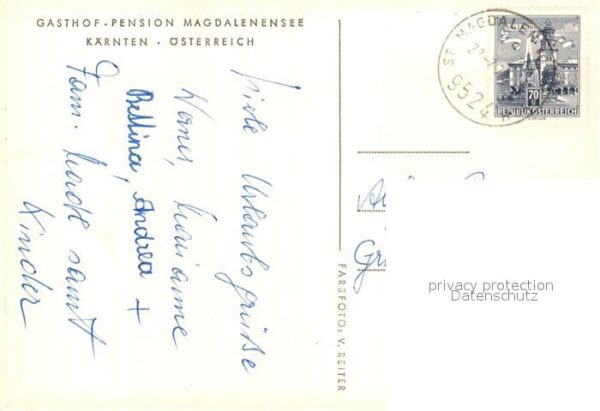 GASTHOF · PENSION MAGDALENENSEE
KÄRNTEN · ÖSTERREICH
Viele Urlaubsgrüße
Werner, Marianne
Bettina, Andrea +
Fam. samt
Kinder
FARBFOTO: V. REITER
ST. MAGDALEN
9524
70
REPUBLIK ÖSTERREICH
privacy protection
Datenschutz